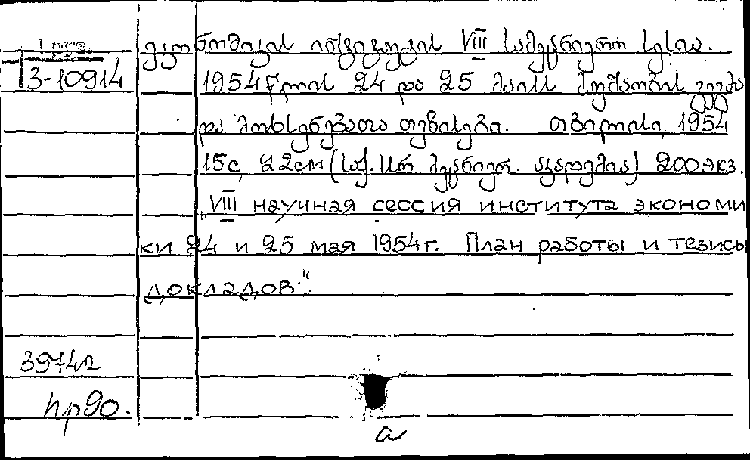 ეკონომიკის ინსტიტუტის VIII სამეცნიერო სესია.
3-10914
1954 წლის 24 და 25 მაისს მუშაობის გეგმა
და მოხსენებათა თეზისები. თბილისი, 1954
15 с, 22 см (საქ. სსრ მეცნიერ. აკადემია) 200 экз.
„VIII научная сессия института экономи
ки 24 и 25 мая 1954 г. План работы и тезисы
докладов".
3974л
пр90.
а